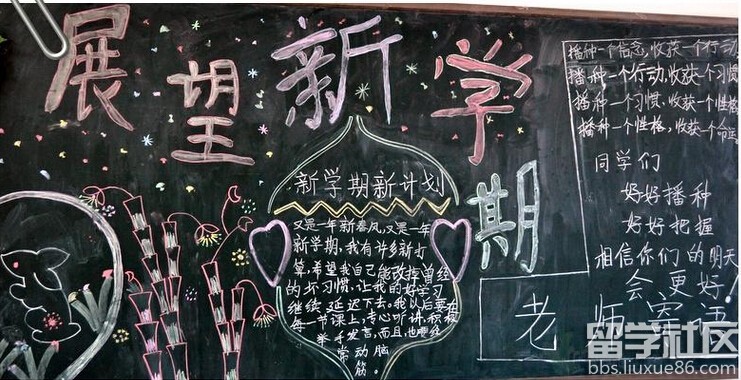 展望新学期
新学期新计划
又是一年新春风,又是一年
新学期,我有许多新打
算,希望我自己能改掉曾经
的坏习惯,让我的好学习
继续延迟下去。我以后要在
每一节课上,专心听讲,积极
举手发言,而且也要经
常动脑
筋。
播种一个信念,收获一个行动,
播种一个行动,收获一个习惯,
播种一个习惯,收获一个性格,
播种一个性格,收获一个命运。
同学们
好好播种
好好把握
相信你们的明天
会更好!
老师寄语
留学社区
bbs.liuxue86.com